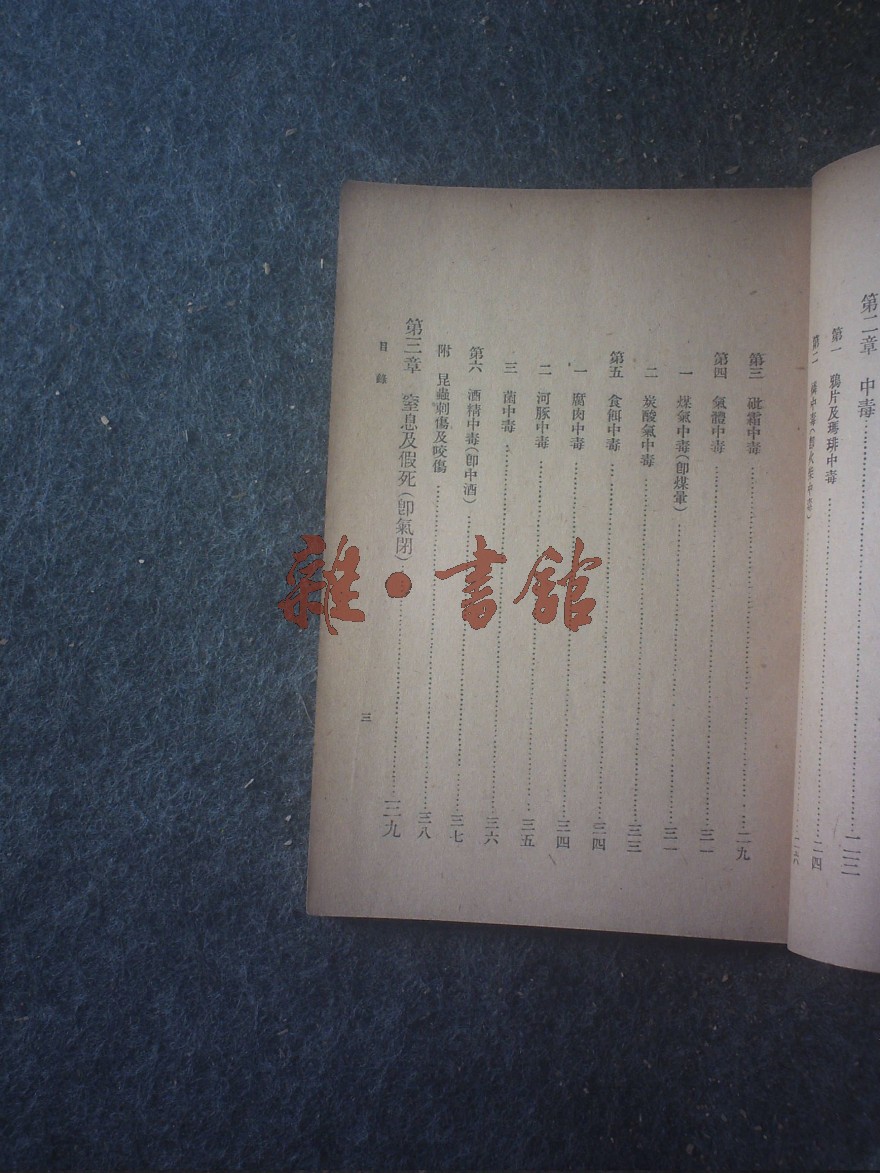 第二章 中毒 二三
第一 鴉片及瑪琲中毒 二四
第二 燐中毒(卽火柴中毒) 二八
第三 砒霜中毒 二九
第四 氣體中毒 三一
一 煤氣中毒(卽煤暈) 三一
二 炭酸氣中毒 三三
第五 食餌中毒 三四
一 腐肉中毒 三四
二 河豚中毒 三五
三 菌中毒 三六
第六 酒精中毒(卽中酒) 三七
附 昆蟲刺傷及咬傷 三八
第三章 窒息及假死(卽氣閉) 三九
目錄 三
雜·書館